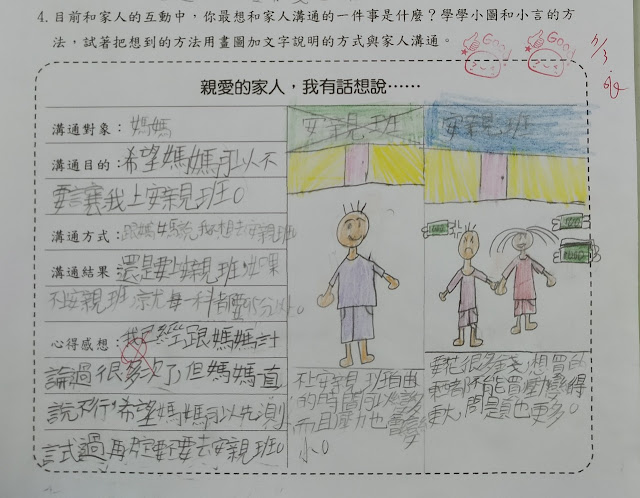 4. 目前和家人的互動中，你最想和家人溝通的一件事是什麼？學學小圖和小言的方
法，試著把想到的方法用畫圖加文字說明的方式與家人溝通。
Good
Good
親愛的家人，我有話想說……
溝通對象：媽媽
溝通目的：希望媽媽可以不
要讓我上安親班。
溝通方式：跟媽媽說我不想去安親班。
溝通結果：還是要上安親班，如果
不上安親班就每一科都要95分以上。
心得感想：我已經跟媽媽討
論過很多次了，但媽媽一直
說不行，希望媽媽可以先測
試過再決定要不要去安親班。
安親班
不上安親班自由
的時間可以變多
而且壓力也會變
小。
安親班
要花很多錢，想買的
東西都不能買，壓力變得
更大，問題也更多。